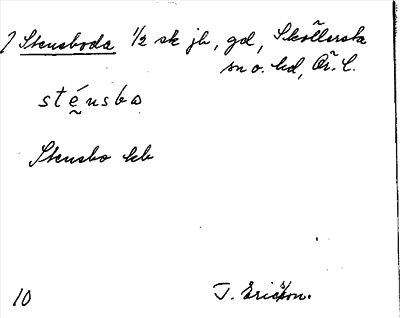 ) Stensboda 1/2 sk jb, gd, Sköllersta
sn o. hd, Ör. l.
sténsbo
Stensbo kb
10 T. Ericsson.